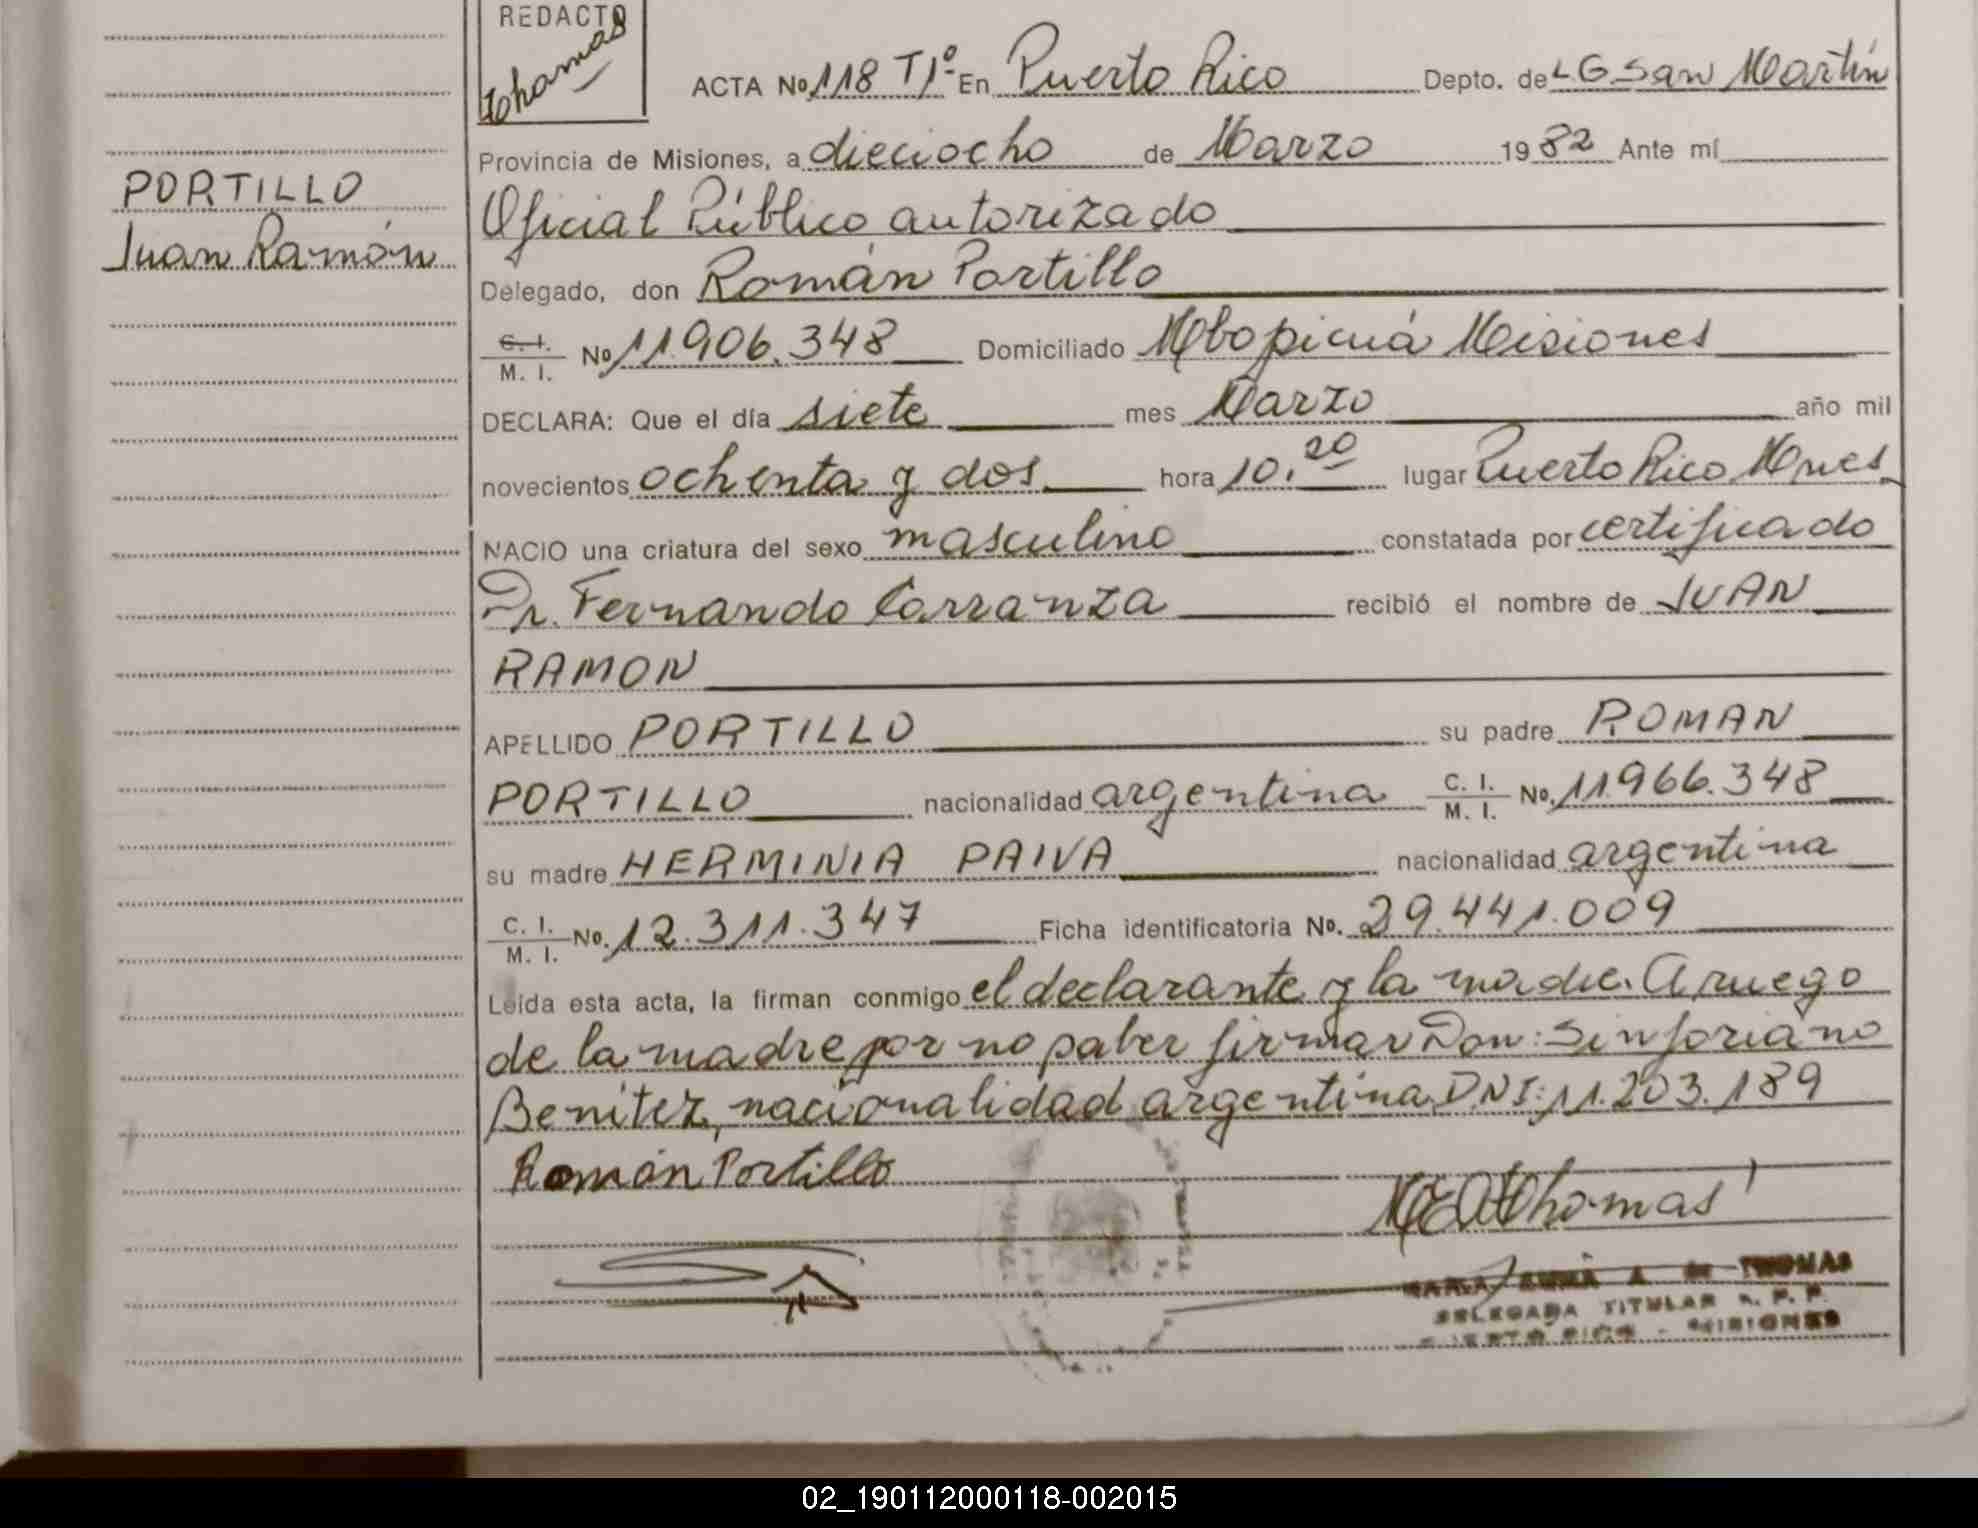 REDACTO
Thomas
ACTA No 118 T1º En Puerto Rico Depto. de L G San Martín
Provincia de Misiones, a dieciocho de Marzo 1982 Ante mí
Oficial Público autorizado
Delegado, don Román Portillo
C. I. M. I. No 11.906.348 Domiciliado Mbopicuá Misiones
DECLARA: Que el día siete mes Marzo año mil
novecientos ochenta y dos hora 10.20 lugar Puerto Rico Mnes
NACIO una criatura del sexo masculino constatada por certificado
Dr. Fernando Carranza recibió el nombre de JUAN
RAMON
APELLIDO PORTILLO su padre ROMAN
PORTILLO nacionalidad argentina C. I. M. I. No. 11.966.348
su madre HERMINIA PAIVA nacionalidad argentina
C. I. M. I. No. 12.311.347 Ficha identificatoria No. 29.441.009
Leída esta acta, la firman conmigo el declarante y la madre. A ruego
de la madre por no saber firmar Don: Sinforiano
Benitez, nacionalidad argentina D.N.I: 11.203.189
Román Portillo
Thomas
MARIA EMMA A de THOMAS
DELEGADA TITULAR R. P. P.
PUERTO RICO - MISIONES
PORTILLO
Juan Ramón
02_190112000118-002015